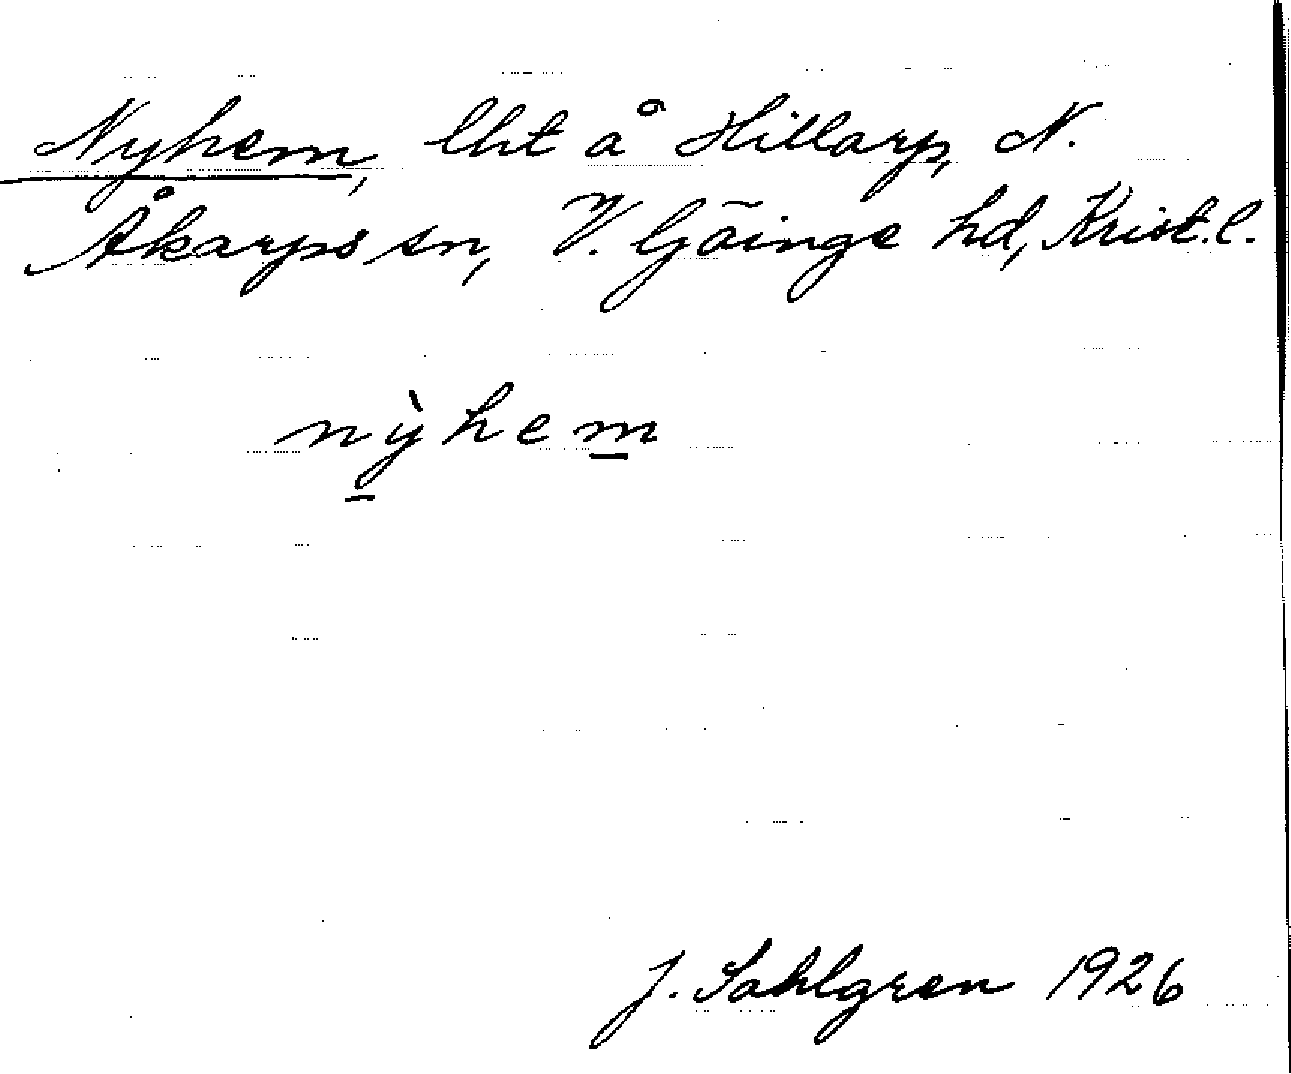 Nyhem, lht å Hillarp, N.
Åkarps sn, V. Göinge hd, Krist. l.
nỳhem
J. Sahlgren 1926